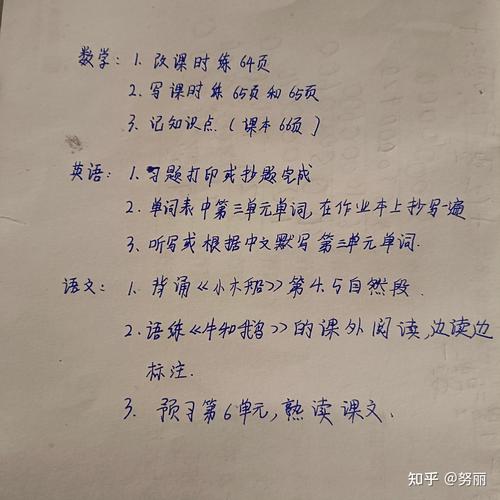 数学：1. 改课时练64页
2. 写课时练65页和65页
3. 记知识点（课本66页）
英语：1. 习题打印或抄题完成
2. 单词表中第三单元单词，在作业本上抄写一遍
3. 听写或根据中文默写第三单元单词.
语文：1. 背诵《小木船》第4.5自然段.
2. 语练《牛和鹅》的课外阅读，边读边
标注.
3. 预习第6单元，熟读课文.
知乎 @努丽